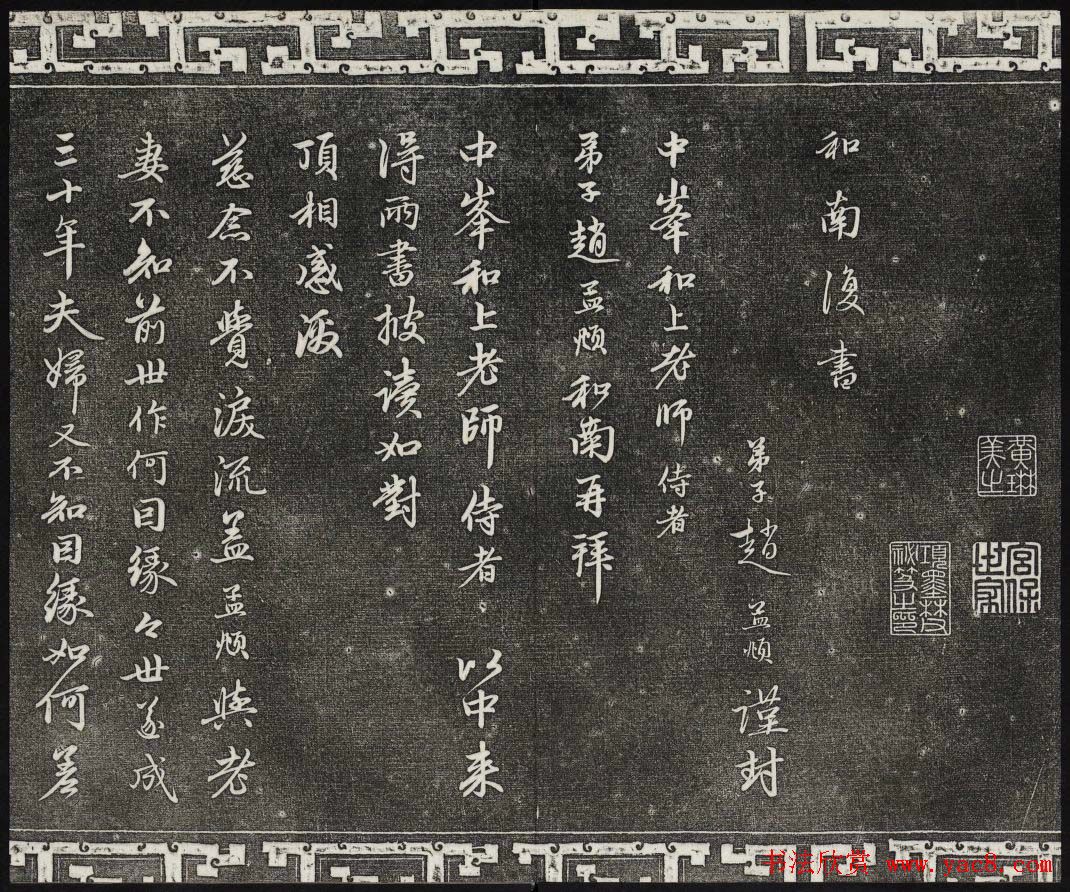 和南復書
弟子趙孟頫謹封
中峯和上老師侍者
弟子趙孟頫和南再拜
中峯和上老師侍者 以中来
得兩書披讀如對
頂相感激
慈念不覺淚流盖孟頫與老
妻不知前世作何因緣々世遂成
三十年夫婦又不知因緣如何差
黄琳美之
宫保世家
項墨林父祕笈之印
书法欣赏 www.yac8.com